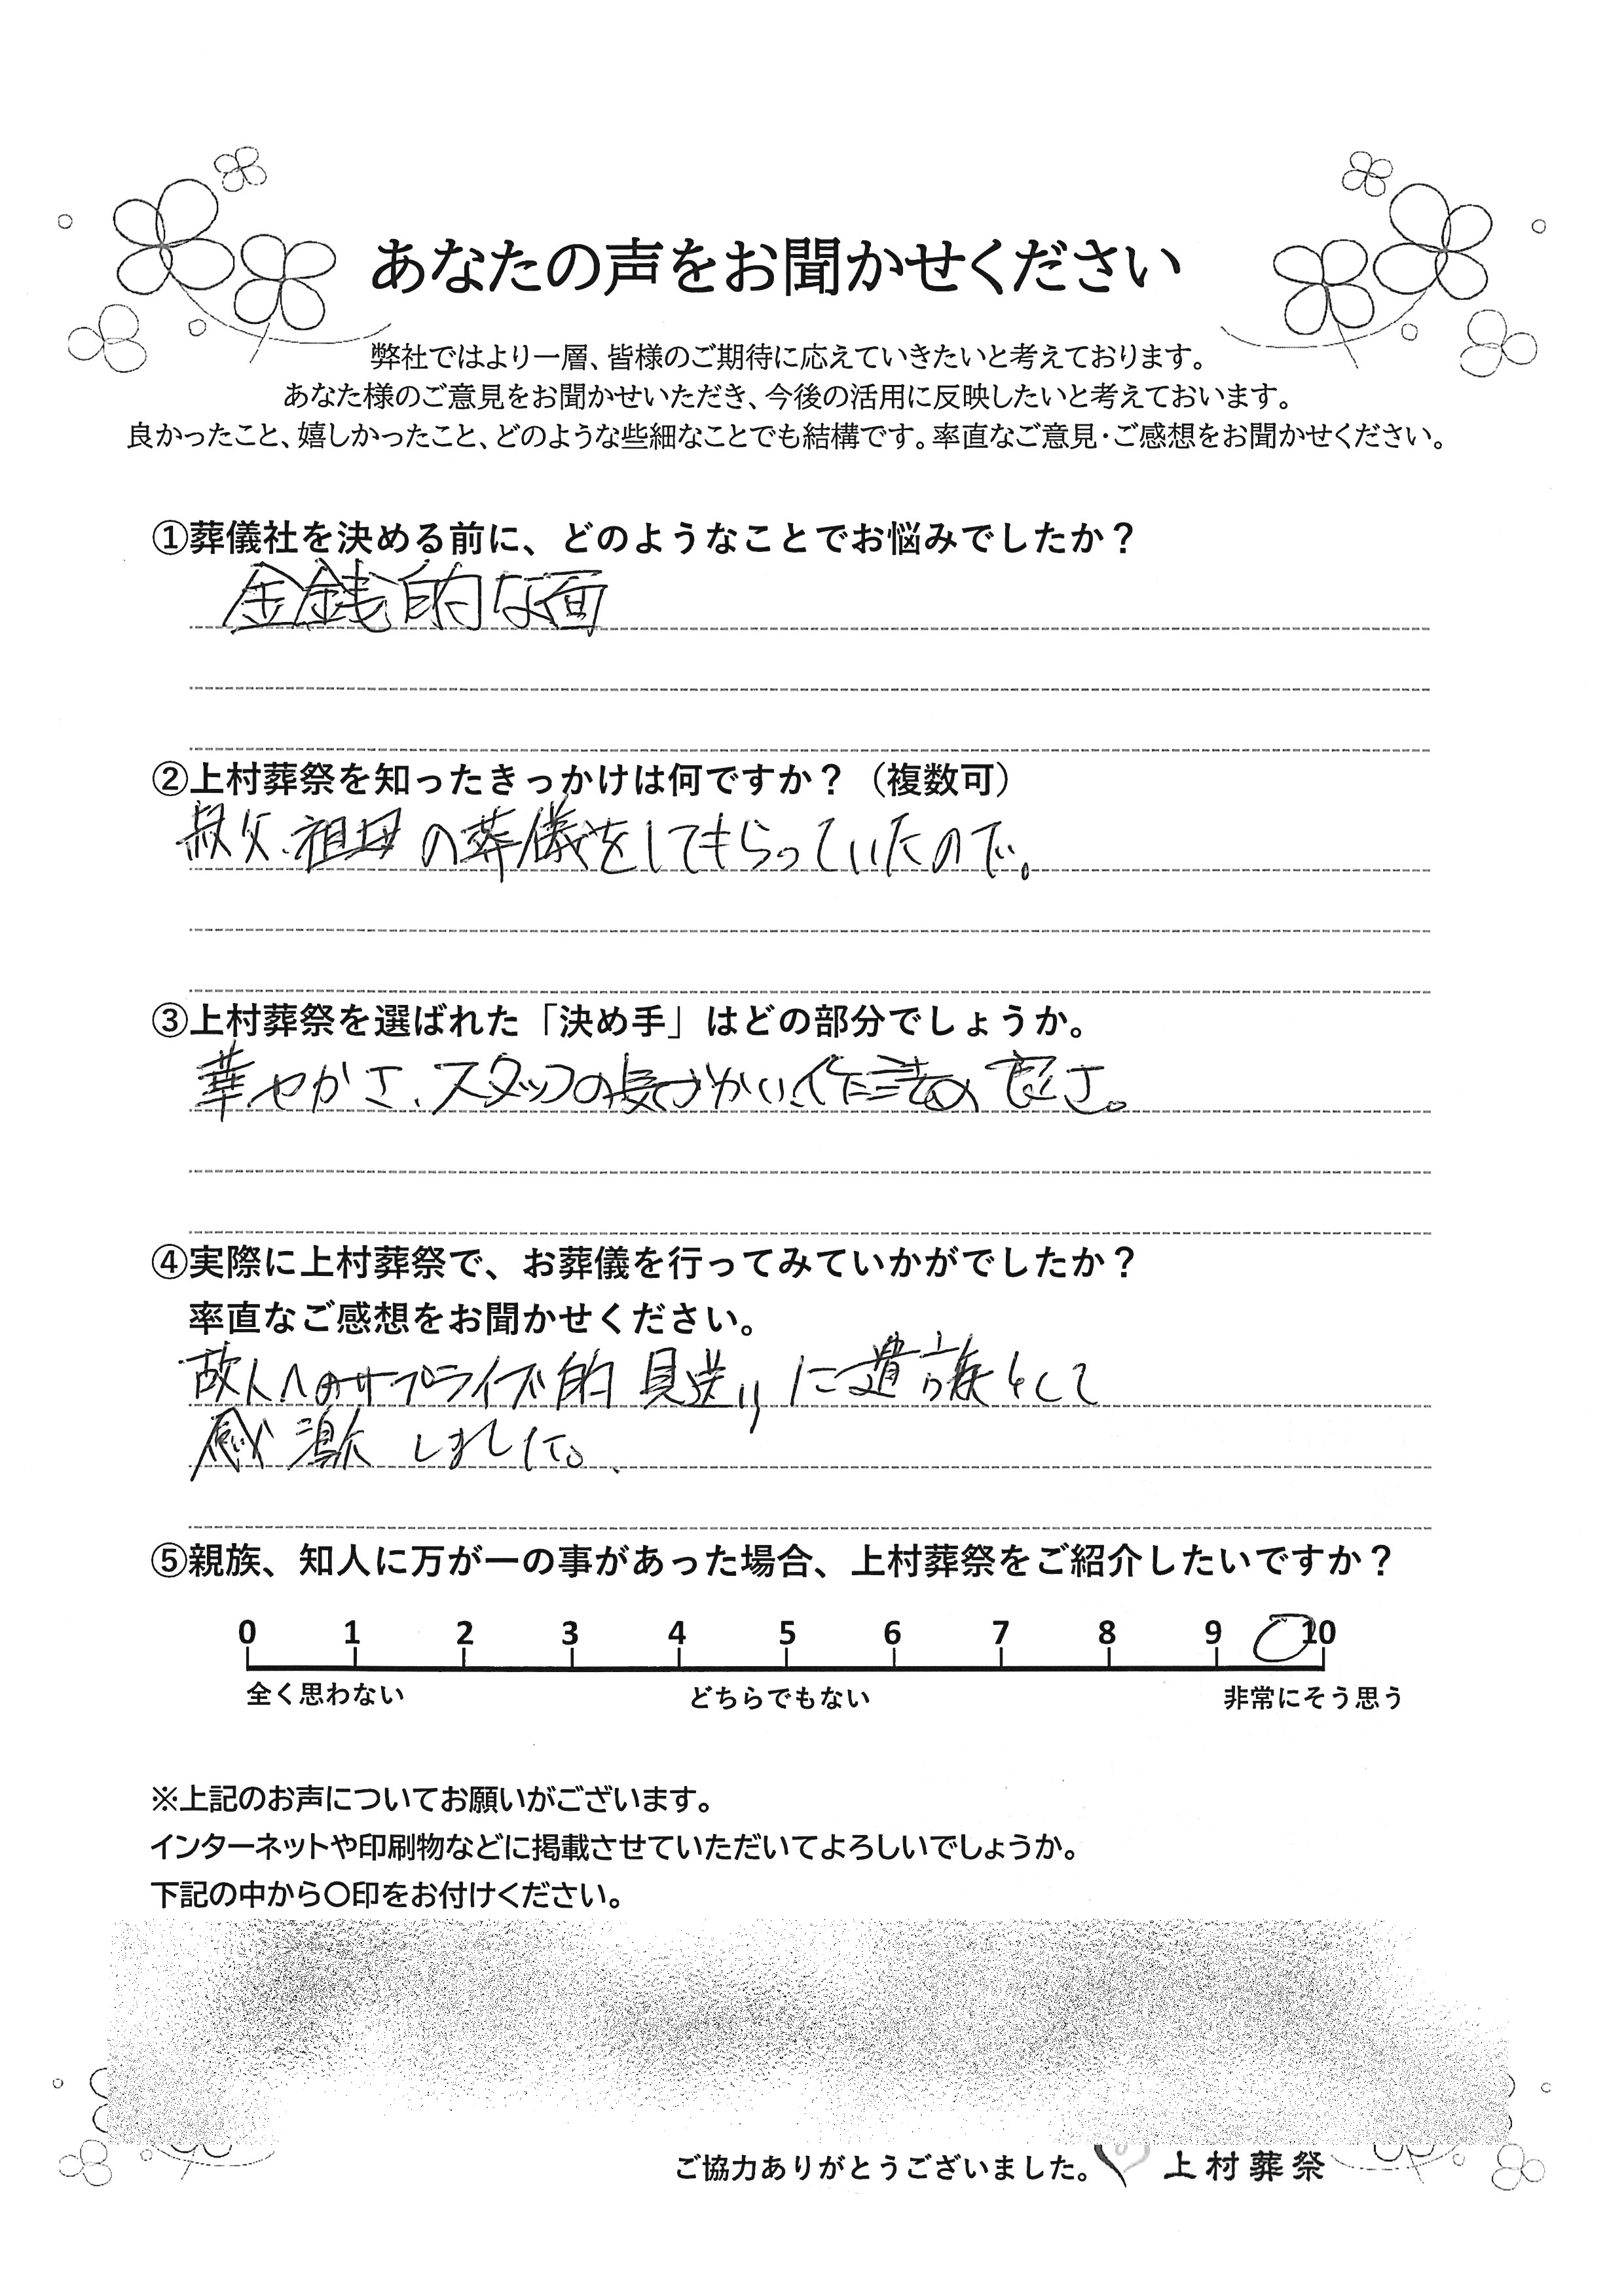 あなたの声をお聞かせください
弊社ではより一層、皆様のご期待に応えていきたいと考えております。
あなた様のご意見をお聞かせいただき、今後の活用に反映したいと考えておいます。
良かったこと、嬉しかったこと、どのような些細なことでも結構です。率直なご意見・ご感想をお聞かせください。
①葬儀社を決める前に、どのようなことでお悩みでしたか？
金銭的な面
②上村葬祭を知ったきっかけは何ですか？（複数可）
叔父、祖母の葬儀をしてもらっていたので。
③上村葬祭を選ばれた「決め手」はどの部分でしょうか。
華やかさ、スタッフの づかい、作法の良さ。
④実際に上村葬祭で、お葬儀を行ってみていかがでしたか？
率直なご感想をお聞かせください。
故人へのサプライズ的見送りに遺族として
感激しました。
⑤親族、知人に万が一の事があった場合、上村葬祭をご紹介したいですか？
0 1 2 3 4 5 6 7 8 9 10
全く思わない どちらでもない 非常にそう思う
※上記のお声についてお願いがございます。
インターネットや印刷物などに掲載させていただいてよろしいでしょうか。
下記の中から〇印をお付けください。
ご協力ありがとうございました。 上村葬祭